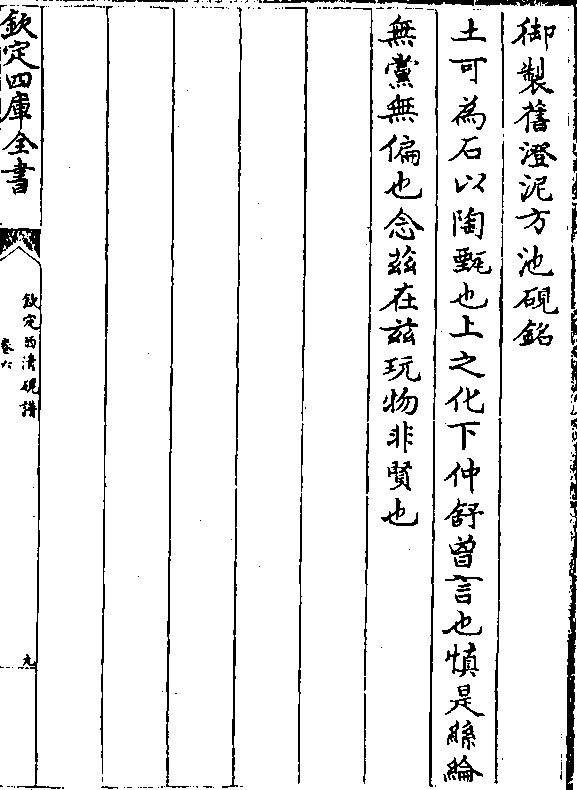 御製舊澄泥方池硯銘
土可為石以陶甄也上之化下仲舒曾言也慎是絲綸
無黨無偏也念兹在兹玩物非賢也
欽定四庫全書
欽定西清硯譜
卷六
九